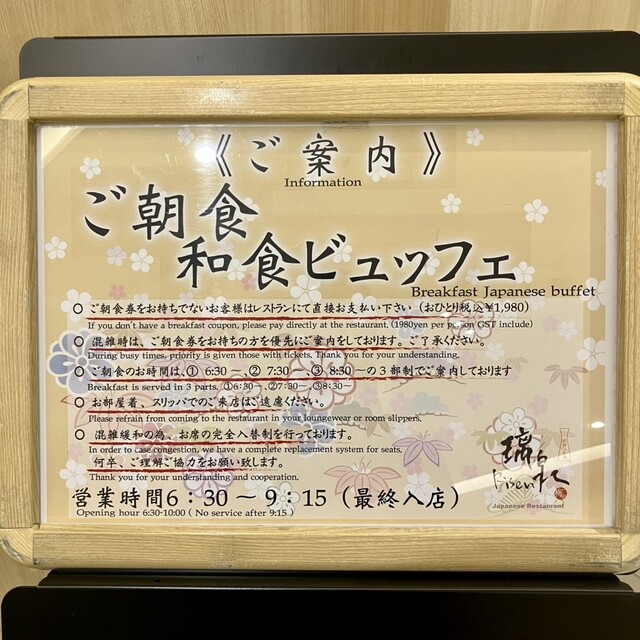 《ご案内》
Information
ご朝食
和食ビュッフェ
Breakfast Japanese buffet
○ ご朝食券をお持ちでないお客様はレストランにて直接お支払い下さい（おひとり税込¥1,980）
If you don't have a breakfast coupon, please pay directly at the restaurant. (1980yen per person GST include)
○ 混雑時は、ご朝食券をお持ちの方を優先にご案内をしております。ご了承ください。
During busy times, priority is given those with tickets. Thank you for your understanding.
○ ご朝食のお時間は、① 6:30～、② 7:30～、③ 8:30～の3部制でご案内しております
Breakfast is served in 3 parts, ①6:30～、②7:30～、③8:30～
○ お部屋着、スリッパでのご来店はご遠慮ください。
Please refrain from coming to the restaurant in your loungewear or room slippers.
○ 混雑緩和の為、お席の完全入替制を行っております。
In order to case congestion, we have a complete replacement system for seats.
何卒、ご理解ご協力をお願い致します。
Thank you for your understanding and cooperation.
営業時間6：30～9：15（最終入店）
Opening hour 6:30-10:00 ( No service after 9:15 )
Japanese Restaurant